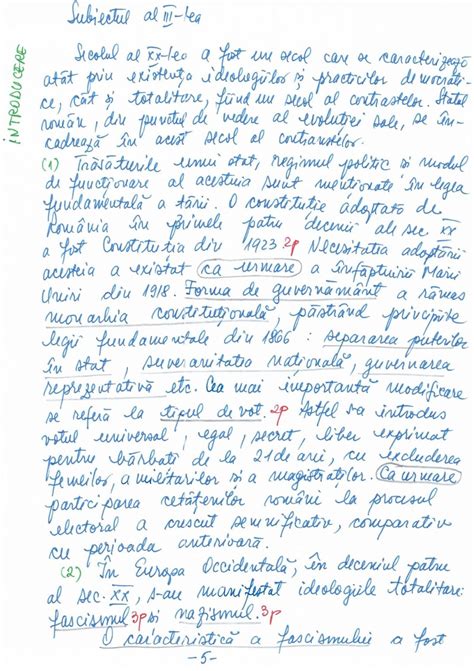 Subiectul al III-lea
INTRODUCERE
Secolul al XX-lea a fost un secol care se caracterizează
atât prin existența ideologiilor și practicilor democrati-
ce, cât și totalitare, fiind un secol al contrastelor. Statul
român, din punctul de vedere al evoluției sale, se în-
cadrează în acest secol al contrastelor.
(1) Trăsăturile unui stat, regimul politic și modul
de funcționare al acestuia sunt menționate în legea
fundamentală a țării. O constituție adoptată de
România în primele patru decenii ale sec. XX
a fost Constituția din 1923 2p Necesitatea adoptării
acesteia a existat ca urmare a înfăptuirii Marii
Uniri din 1918. Forma de guvernământ a rămas
monarhia constituțională, păstrând principiile
legii fundamentale din 1866 : separarea puterilor
în stat, suveranitatea națională, guvernarea
reprezentativă etc. Cea mai importantă modificare
se referă la tipul de vot. 2p Astfel s-a introdus
votul universal, egal, secret, liber exprimat
pentru bărbați de la 21 de ani, cu excluderea
femeilor, a militarilor și a magistraților. Ca urmare
participarea cetățenilor români la procesul
electoral a crescut semnificativ, comparativ
cu perioada anterioară.
(2) În Europa Occidentală, în deceniul patru
al sec. XX, s-au manifestat ideologiile totalitare:
fascismul 3p și nazismul. 3p
O caracteristică a fascismului a fost
-5-